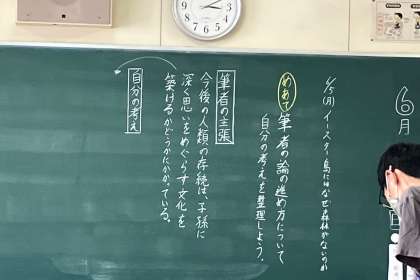 6月
6/5(月) イースター島にはなぜ森林がないのか
めあて 筆者の論の進め方について
自分の考えを整理しよう。
筆者の主張
今後の人類の存続は、子孫に
深く思いをめぐらす文化を
築けるかどうかにかかっている。
自分の考え